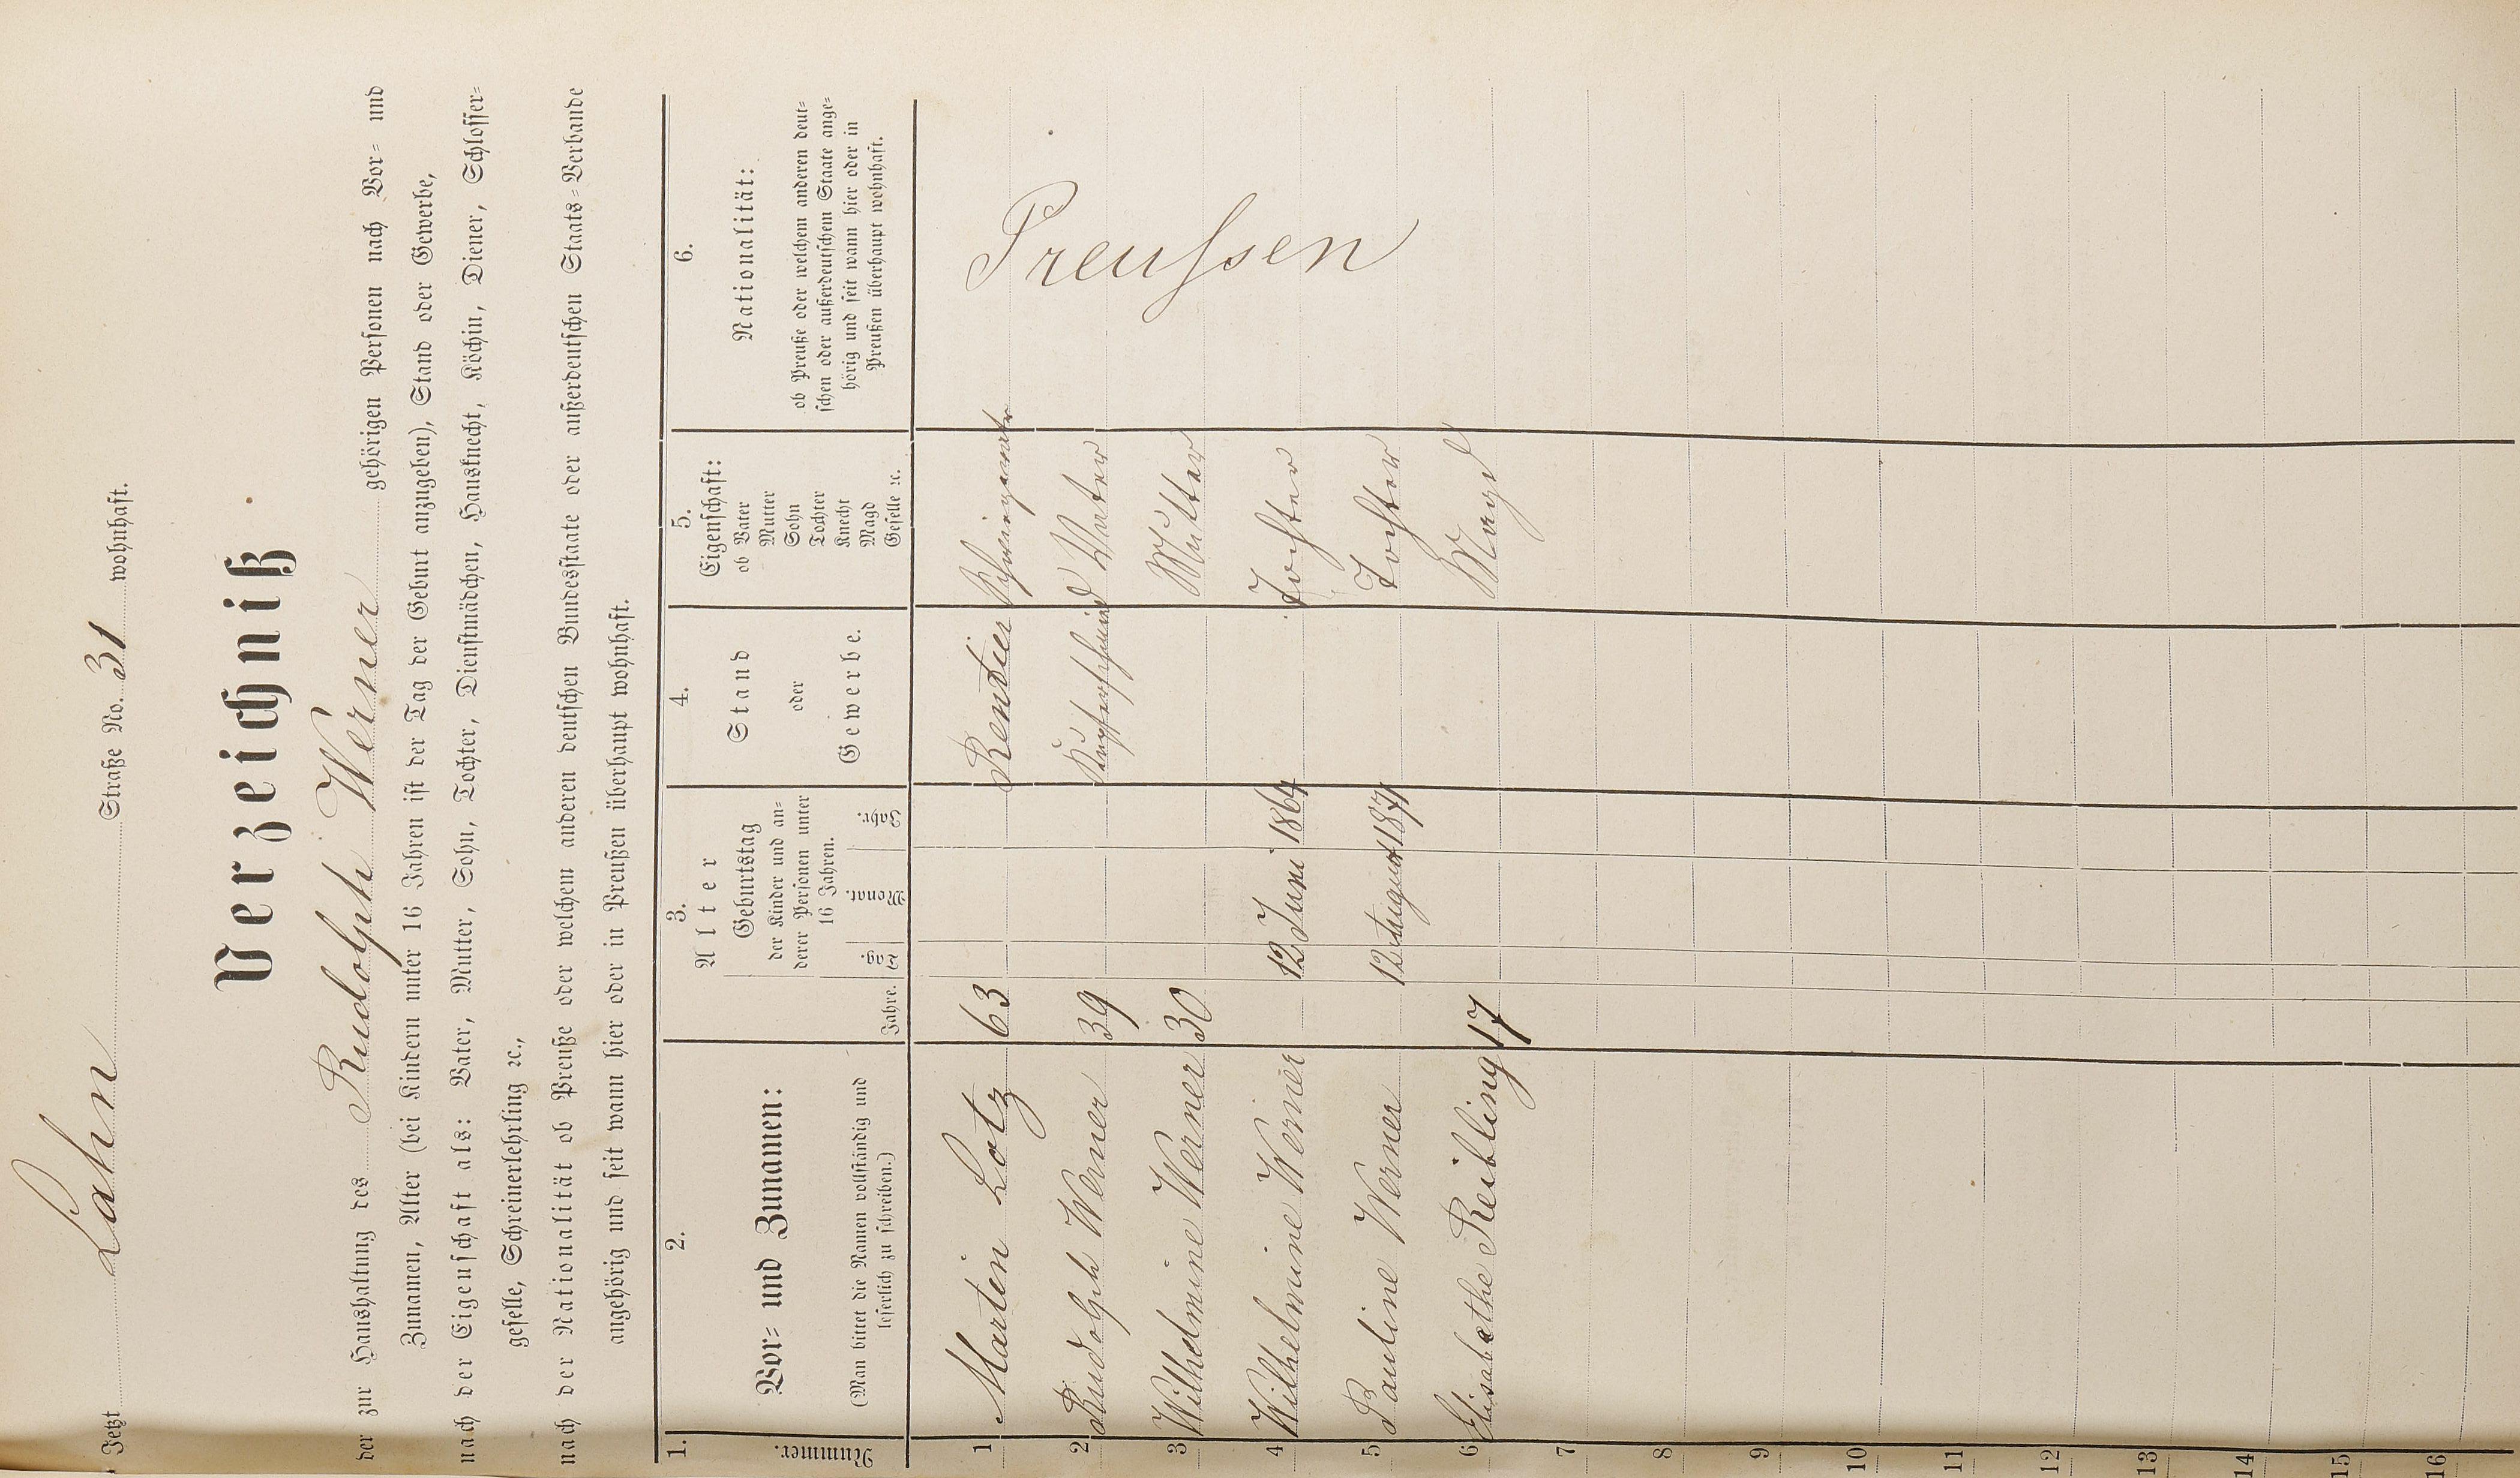 Jetzt Lahn Straße No. 31 wohnhaft.
Verzeichniß
der zur Haushaltung des Rudolph Werner gehörigen Personen nach Vor= und
Zunamen, Alter (bei Kindern unter 16 Jahren ist der Tag der Geburt anzugeben), Stand oder Gewerbe,
nach der Eigenschaft als: Vater, Mutter, Sohn, Tochter, Dienstmädchen, Hausknecht, Köchin, Diener, Schlosser=
geselle, Schreinerlehrling ꝛc.,
nach der Nationalität ob Preuße oder welchem anderen deutschen Bundesstaate oder außerdeutschen Staats=Verbande
angehörig und seit wann hier oder in Preußen überhaupt wohnhaft.
1. 2. 3. 4. 5. 6.
Nummer.
Vor= und Zunamen:
(Man bittet die Namen vollständig und
leserlich zu schreiben.)
Alter
Jahre.
Geburtstag
der Kinder und an=
derer Personen unter
16 Jahren.
Tag. Monat. Jahr.
Stand
oder
Gewerbe.
Eigenschaft:
ob Vater
Mutter
Sohn
Tochter
Knecht
Magd
Geselle ꝛc.
Nationalität:
ob Preuße oder welchem anderen deut=
schen oder außerdeutschem Staate ange=
hörig und seit wann hier oder in
Preußen überhaupt wohnhaft.
1 Martin Lotz 63 Rentier Schwiegervater
2 Rudolph Werner 39 Kupferschmied Vater
3 Wilhelmine Werner 30 Mutter
4 Wilhelmine Werner 12 Juni 1864 Tochter
5 Pauline Werner 12 August 1871 Tochter
6 Elisabethe Reibling 17 Magd
Preußen
7
8
9
10
11
12
13
14
15
16